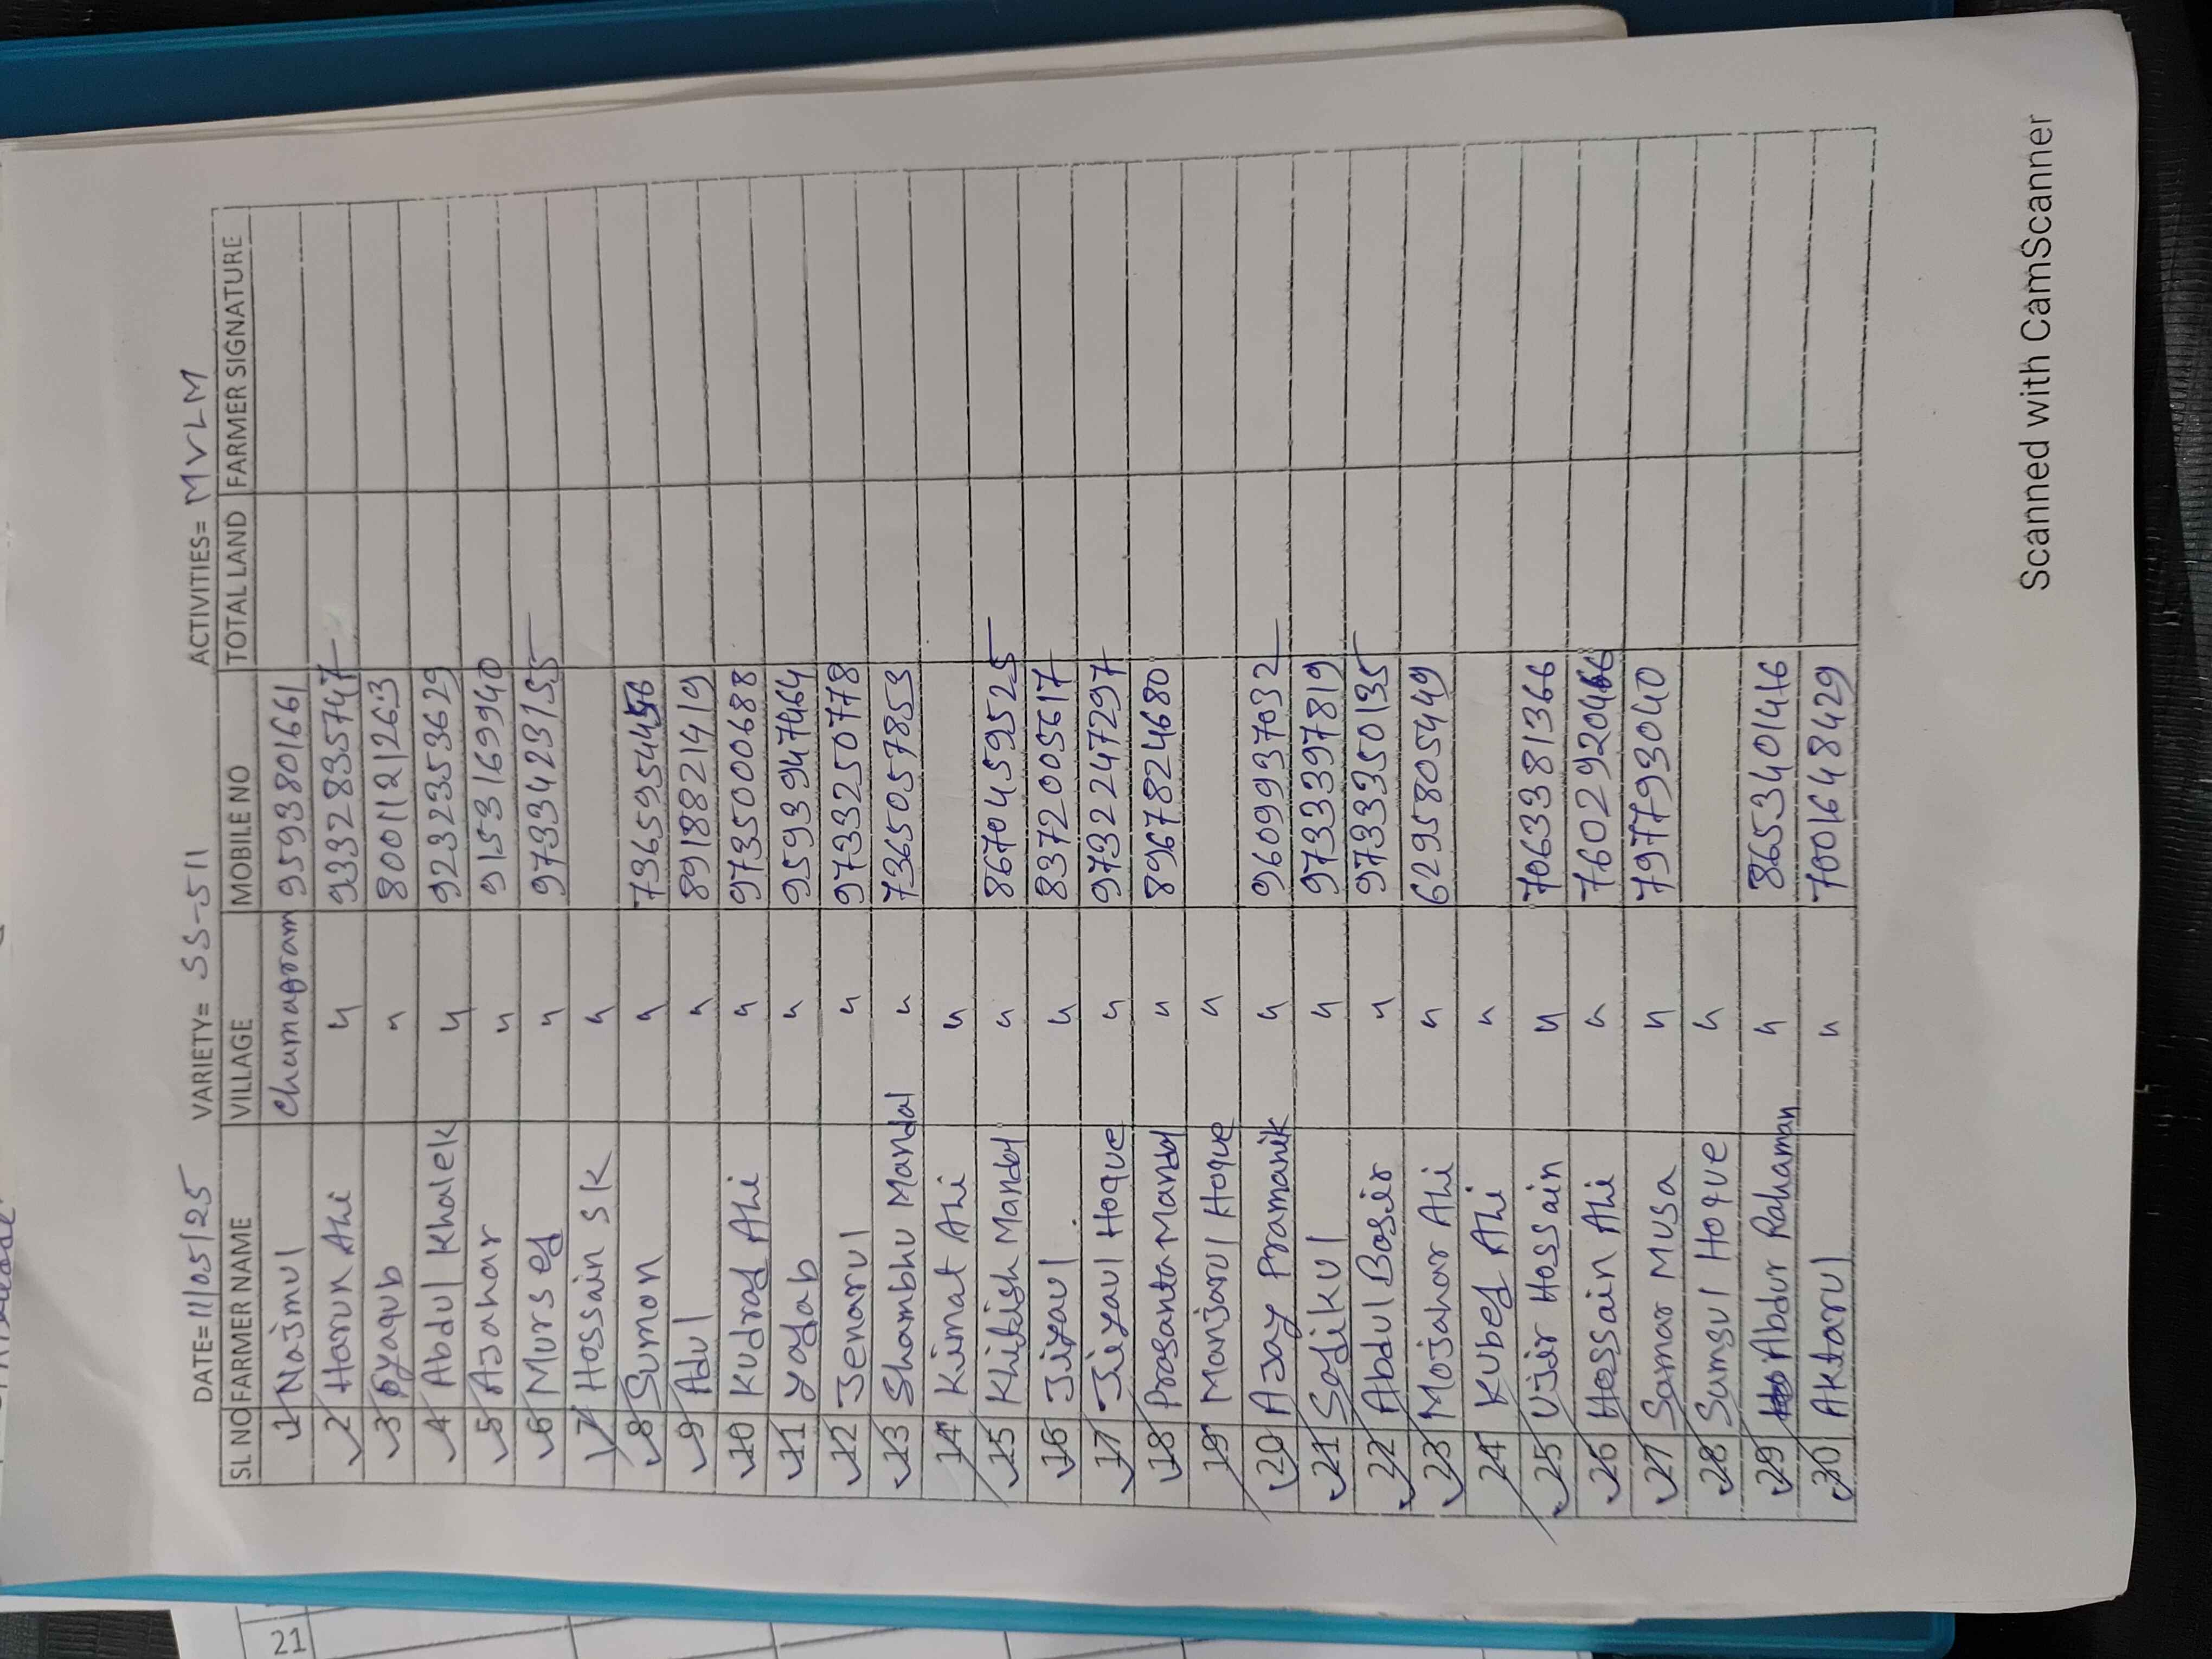 DATE= 11/05/25 VARIETY= SS-511 ACTIVITIES= MVLM
SL NO FARMER NAME VILLAGE MOBILE NO TOTAL LAND FARMER SIGNATURE
1 Najmul Chamagram 9593801661
2 Harun Ali " 9332835747
3 Eyaqub " 8001121263
4 Abdul Khalek " 9232353629
5 Ajahar " 9153169940
6 Mursed " 9733423155
7 Hossain SK "
8 Sumon " 7365954456
9 Adul " 8918821419
10 Kudrad Ali " 9735000688
11 Yadab " 9593947464
12 Jenarul " 9733250778
13 Shambhu Mandal " 7365057853
14 Kimat Ali "
15 Khitish Mandal " 8670459525
16 Jiyaul " 8372005617
17 Jieyaul Hoque " 9732247297
18 Prosanta Mandal " 8967824680
19 Manjarul Hoque "
20 Ajay Pramanik " 9609937032
21 Sadikul " 9733397819
22 Abdul Bosir " 9733350135
23 Mojahar Ali " 6295805449
24 Kubed Ali "
25 Ujir Hossain " 7063381366
26 Hossain Ali " 7602920466
27 Samar Musa " 797793040
28 Sumsul Hoque "
29 Abdur Rahaman " 8653401446
30 Aktarul " 7001648429
Scanned with CamScanner
21